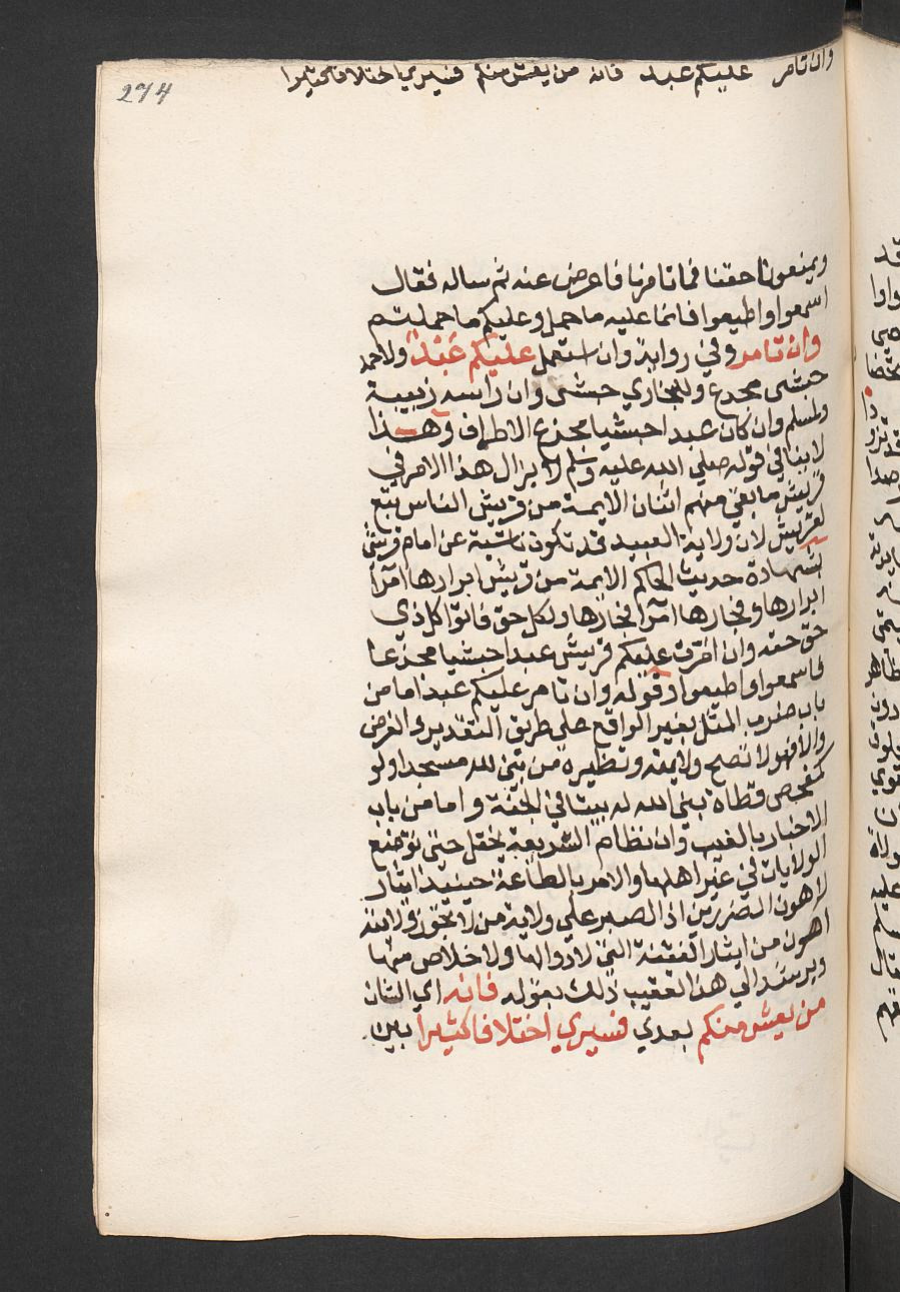 وان تامر عليكم عبد فانه من يعش منكم فسيري اختلافا كثيرا
274
ويمنعونا حقنا فما تامرنا فاعرض عنه ثم ساله فقال
اسمعوا واطيعوا فانما عليه ما حمل وعليكم ما حملتم
وان تامر وفي رواية وان استعمل عليكم عبد ولاحمد
حبشي مجدع وللبخاري حبشي وان راسه زبيبة
ولمسلم وان كان عبدا حبشيا مجدع الاطراف وهذا
لا ينافي قوله صلي الله عليه وسلم لا يزال هذا الامر في
قريش ما بقي منهم اثنان الايمة من قريش الناس تبع
لقريش لان ولاية العبيد قد تكون ناشية عن امام قرشي
بشهادة حديث الحاكم الايمة من قريش ابرارها امرا
ابرارها وفجارها امرا فجارها ولكل حق فاتوا كل ذي
حق حقه وان امرت عليكم قريش عبدا حبشيا مجدعا
فاسمعوا واطيعوا وقوله وان تامر عليكم عبد اما من
باب ضرب المثل بغير الواقع علي طريق التقدير والفرض
والا فهو لا تصح ولايته ونظيره من بني لله مسجدا ولو
كمفحص قطاة بني الله له بيتا في الجنة واما من باب
الاخبار بالغيب وان نظام الشريعة يختل حتي توضع
الولايات في غير اهلها والامر بالطاعة حينيذ ايثار
لاهون الضررين اذ الصبر علي ولاية من لا تجوز ولايته
اهون من ايثار الفتنة التي لا دوا لها ولا خلاص منها
ويرشد الي هذا تعقيب ذلك بقوله فانه اي الشان
من يعش منكم بعدي فسيري اختلافا كثيرا بين